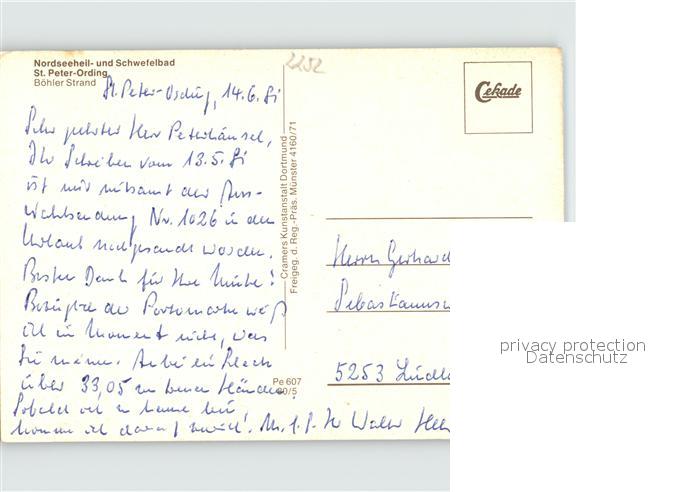 Nordseeheil- und Schwefelbad
St. Peter-Ording
Böhler Strand
2252
St. Peter-Ording, 14.6.81
Sehr geehrter Herr Peterhänsel,
Ihr Schreiben vom 13.5.81
ist mir mitsamt der Aus-
wahlsendung Nr. 1026 in den
Urlaub nachgesandt worden.
Besten Dank für Ihre Mühe!
Bezüglich der Portomarke weiß
ich im Moment nicht, was
Sie meinen. Anbei ein Scheck
über 33,05 zu treuen Händen.
Sobald ich zu Hause bin,
komme ich darauf zurück. Mit Walter
Cramers Kunstanstalt Dortmund
Freigeg. d. Reg.-Präs. Münster 4160/71
Pe 607
80/5
Cekade
Herrn Gerhard
5253
privacy protection
Datenschutz